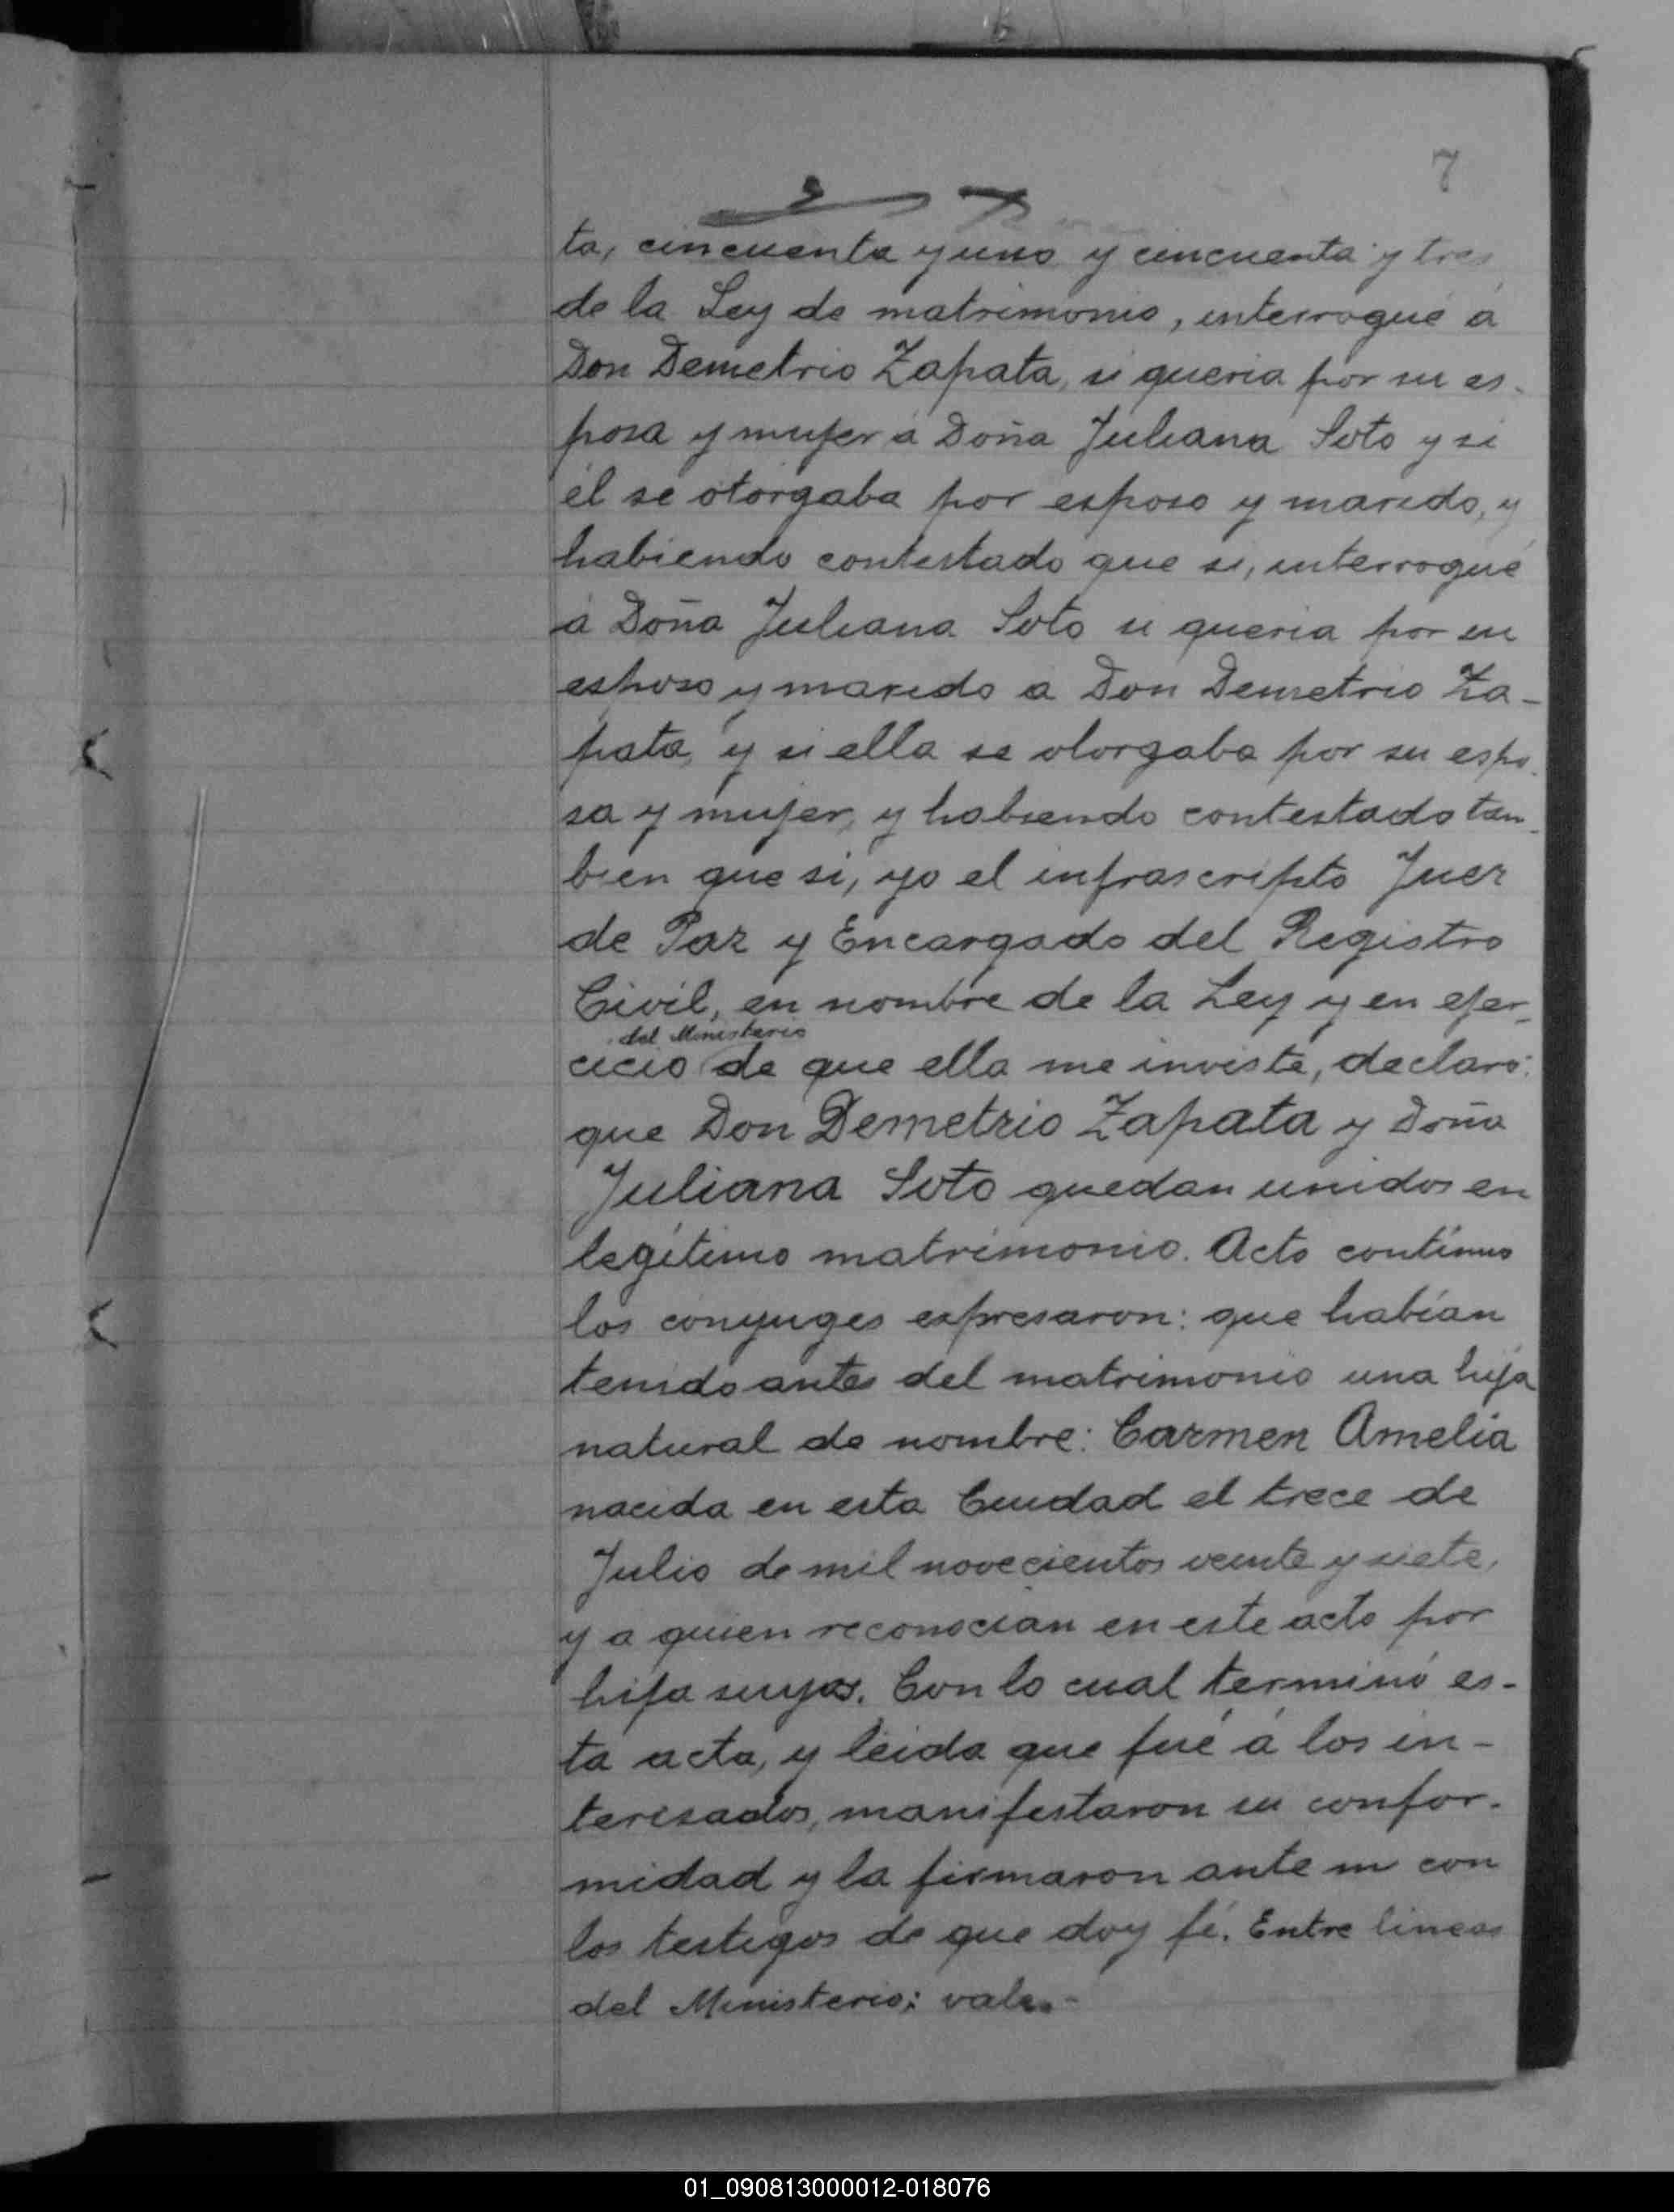 7
ta, cincuenta y uno y cincuenta y tres
de la Ley de matrimonio, interrogué á
Don Demetrio Zapata, si queria por su es-
posa y mujer á Doña Juliana Soto y si
él se otorgaba por esposo y marido, y
habiendo contestado que si, interrogué
á Doña Juliana Soto si queria por su
esposo y marido a Don Demetrio Za-
pata, y si ella se otorgaba por su espo-
sa y mujer, y habiendo contestado tam-
bien que si, yo el infrascripto Juez
de Paz y Encargado del Registro
Civil, en nombre de la Ley y en ejer-
del Ministerio
cicio de que ella me inviste, declaro:
que Don Demetrio Zapata y Doña
Juliana Soto quedan unidos en
legítimo matrimonio. Acto contínuo
los conyuges espresaron: que habían
tenido antes del matrimonio una hija
natural de nombre: Carmen Amelia
nacida en esta Ciudad el trece de
Julio de mil novecientos veinte y siete,
y a quien reconocian en este acto por
hija suya. Con lo cual terminó es-
ta acta, y leida que fué á los in-
teresados, manifestaron su confor-
midad y la firmaron ante mi con
los testigos de que doy fé. Entre lineas
del Ministerio: vale.-
01_090813000012-018076